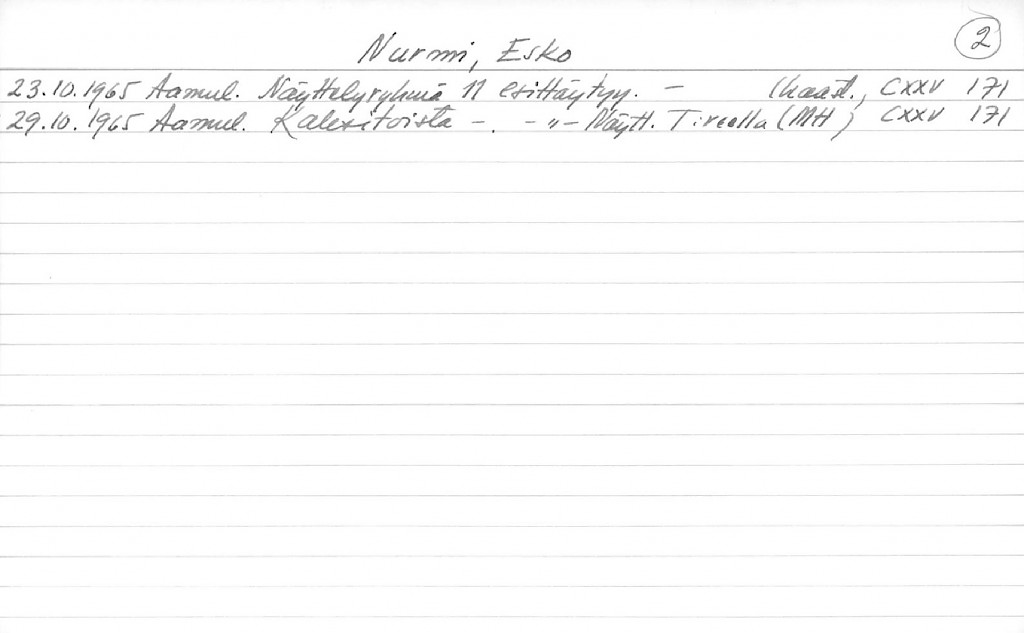 2
Nurmi, Esko
23.10.1965 Aamul. Näyttelyryhmä 11 esittäytyy. - (haast., CXXV 171
29.10.1965 Aamul. - . - " - Näytt. T:reella (MH) CXXV 171